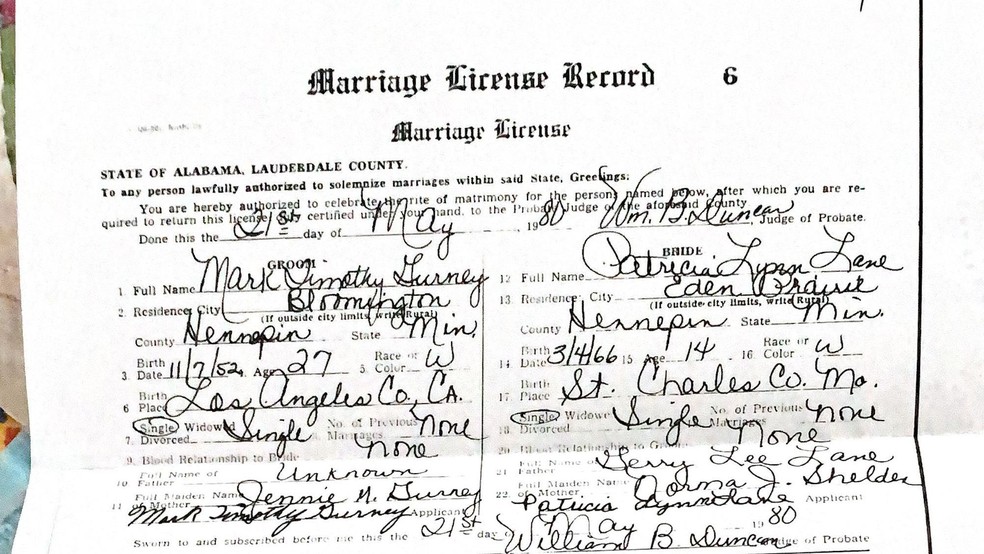 Marriage License Record 6
Marriage License
STATE OF ALABAMA, LAUDERDALE COUNTY.
To any person lawfully authorized to solemnize marriages within said State, Greetings:
You are hereby authorized to celebrate the rite of matrimony for the persons named below, after which you are re-
quired to return this license certified under your hand, to the Probate Judge of the aforesaid County
Done this the 21st day of May 1980 Wm. B. Duncan, Judge of Probate.
GROOM
1. Full Name Mark Timothy Gurney
2. Residence, City Bloomington
(If outside city limits, write Rural)
County Hennepin State Min.
3. Birth Date 11/7/52 4. Age 27 5. Race or Color W
6. Birth Place Los Angeles Co., CA.
7. Single Widowed Divorced Single No. of Previous Marriages None
9. Blood Relationship to Bride None
10. Full Name of Father Unknown
11. Full Maiden Name of Mother Jennie M. Gurney
Mark Timothy Gurney Applicant
BRIDE
12. Full Name Patricia Lynn Lane
13. Residence, City Eden Prairie
(If outside city limits, write Rural)
County Hennepin State Min.
14. Birth Date 3/4/66 15. Age 14 16. Race or Color W
17. Birth Place St. Charles Co. Mo.
18. Single Widowed Divorced Single No. of Previous Marriages None
20. Blood Relationship to Groom None
21. Full Name of Father Jerry Lee Lane
22. Full Maiden Name of Mother Norma J. Shelden
Patricia Lynn Lane Applicant
Sworn to and subscribed before me this the 21st day May 1980
William B. Duncan Judge of Probate